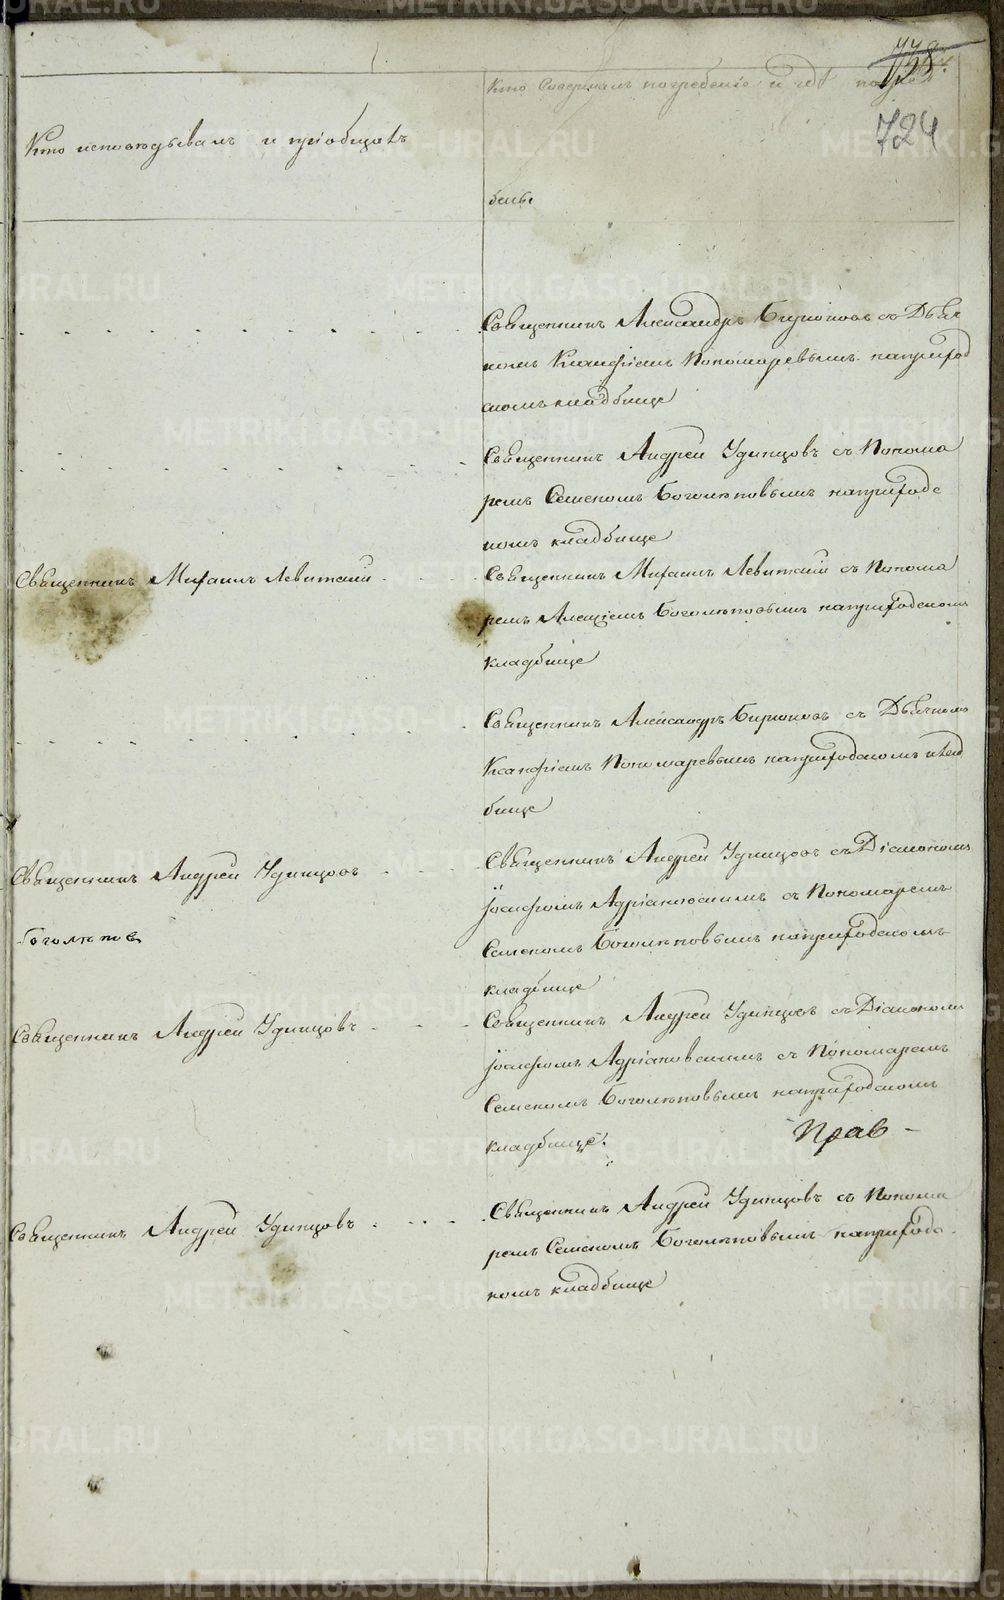 724
Кто исповѣдывалъ и пріобщалъ
Кто совершалъ погребеніе и гдѣ погре
бены
Священникъ Александръ Бирюковъ съ Дьяч
комъ Ксанфіемъ Пономаревымъ на приход
скомъ кладбище
Священникъ Андрей Удинцовъ съ Понома
ремъ Семеномъ Боголѣповымъ на приходс
комъ кладбище
Священникъ Михаилъ Левитскій
Священникъ Михаилъ Левитскій съ Понома
ремъ Алексіемъ Боголѣповымъ на приходскомъ
кладбище
Священникъ Александръ Бирюковъ съ Дьячкомъ
Ксанфіемъ Пономаревымъ на приходскомъ клад
бище
Священникъ Андрей Удинцовъ
Боголѣповъ
Священникъ Андрей Удинцовъ съ Діакономъ
Іосифомъ Адріановскимъ съ Пономаремъ
Семеномъ Боголѣповымъ на приходскомъ
кладбище
Священникъ Андрей Удинцовъ
Священникъ Андрей Удинцовъ съ Діакономъ
Іосифомъ Адріановскимъ съ Пономаремъ
Семеномъ Боголѣповымъ на приходскомъ
кладбище.
Прав-
Священникъ Андрей Удинцовъ
Священникъ Андрей Удинцовъ съ Понома
ремъ Семеномъ Боголѣповымъ на приходс
комъ кладбище
METRIKI.GASO-URAL.RU